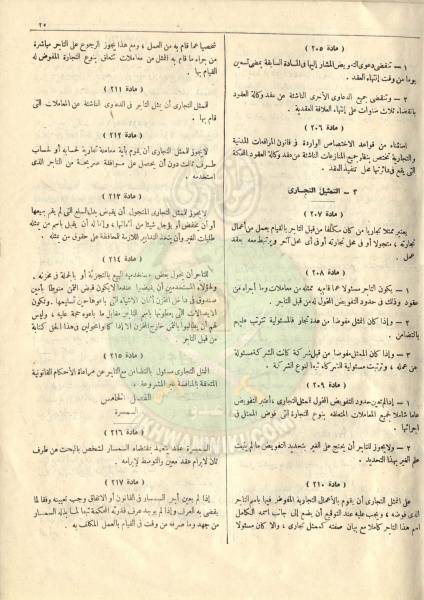 ٢٥
( مادة ٢٠٥ )
١ — تنقضي دعوى التعويض المشار إليها في المادة السابقة بمضي تسعين
يوما من وقت إنتهاء العقد .
٢ — وتنقضي جميع الدعاوى الأخرى الناشئة عن عقد وكالة العقود
بانقضاء ثلاث سنوات على إنتهاء العلاقة العقدية .
( مادة ٢٠٦ )
استثناء من قواعد الاختصاص الواردة في قانون المرافعات المدنية
والتجارية تختص بنظر جميع المنازعات الناشئة من عقد وكالة العقود المحكمة
التي يقع في دائرتها محل تنفيذ العقد .
٣ — التمثيل التجاري
( مادة ٢٠٧ )
يعتبر ممثلا تجاريا من كان مكلفا من قبل التاجر بالقيام بعمل من أعمال
تجارته ، متجولا أو في محل تجارته أو في أى محل آخر ويرتبط معه بعقد
عمل .
( مادة ٢٠٨ )
١ — يكون التاجر مسئولا عما قام به ممثله من معاملات وما أجراه من
عقود وذلك في حدود التفويض المخول له من قبل التاجر .
٢ — وإذا كان الممثل مفوضا من عدة تجار فالمسئولية تترتب عليهم
بالتضامن .
٣ — وإذا كان الممثل مفوضا من قبل شركة كانت الشركة مسئولة
عن عمله ، وترتبت مسئولية الشركاء تبعا لنوع الشركة .
( مادة ٢٠٩ )
١ — إذا لم تعين حدود التفويض المخول للممثل التجارى ، أعتبر التفويض
عاما شاملا لجميع المعاملات المتعلقه بنوع التجارة التى فوض الممثل فى
اجرائها .
٢ — ولا يجوز للتاجر أن يحتج على الغير بتحديد التفويض ما لم يثبت
علم الغير بهذا التحديد .
( مادة ٢١٠ )
على الممثل التجارى أن يقوم بالأعمال التجارية المفوض فيها باسم التاجر
الذى فوضه ، ويجب عليه عند التوقيع أن يضع إلى جانب اسمه الكامل
اسم هذا التاجر كاملا مع بيان صفته كممثل تجارى ، والا كان مسئولا
شخصيا عما قام به من العمل ، ومع هذا يجوز الرجوع على التاجر مباشرة
من جراء ما قام به الممثل من معاملات تتعلق بنوع التجارة المفوض له
القيام بها .
( مادة ٢١١ )
للممثل التجارى أن يمثل التاجر فى الدعاوى الناشئة عن المعاملات التى
قام بها .
( مادة ٢١٢ )
لا يجوز للممثل التجارى أن يقوم بأية معاملة تجارية لحسابه أو لحساب
طرف ثالث دون أن يحصل على موافقة صريحة من التاجر الذى
استخدمه .
( مادة ٢١٣ )
لا يجوز للممثل التجارى المتجول أن يقبض بدل السلع التى لم يقم ببيعها
أو أن يخفض أو يؤجل شيئا من أثمانها ، وانما له أن يقبل باسم من يمثله
طلبات الغير وأن يتخذ التدابير اللازمة للمحافظة على حقوق من يمثله .
( مادة ٢١٤ )
للتاجر أن يخول بعض مستخدميه البيع بالتجزئة أو بالجملة فى مخزنه .
ولهؤلاء المستخدمين أن يقبضوا عندها لا يكون قبض الثمن منوطا بأمين
صندوق فى داخل المخزن أثمان الاشياء التى باعوها حين تسليمها . وتكون
الايصالات التى يعطونها باسم التاجر مقابل ما باعوه حجة عليه ، وليس
لهم أن يطالبوا بالثمن خارج المخزن الا إذا كانوا مخولين فى هذا الحق كتابة
من قبل التاجر .
( مادة ٢١٥ )
الممثل التجارى مسئول بالتضامن مع التاجر عن مراعاة الأحكام القانونية
المتعلقة بالمنافسة غير المشروعة .
الفصل الخامس
السمسرة
( مادة ٢١٦ )
السمسرة عقد يتعهد بمقتضاه السمسار لشخص بالبحث عن طرف
ثان لابرام عقد معين والتوسط لإبرامه .
( مادة ٢١٧ )
إذا لم يعين أجر السمسار فى القانون أو الاتفاق وجب تعيينه وفقا لما
يقضى به العرف وإذا لم يوجد عرف قدرته المحكمة تبعا لما بذله السمسار
من جهد وما صرفه من وقت فى القيام بالعمل المكلف به .